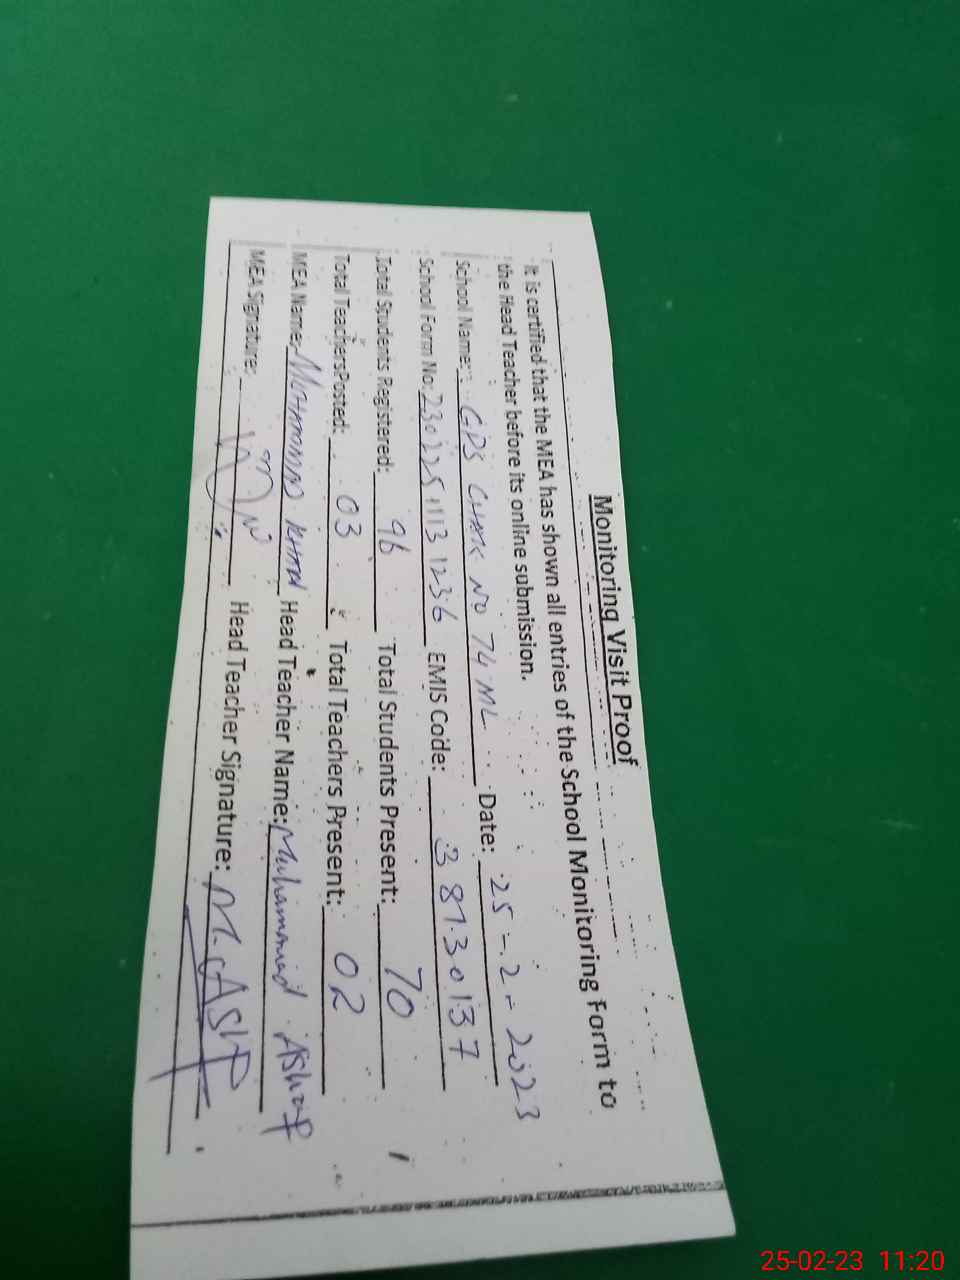 Monitoring Visit Proof
It is certified that the MEA has shown all entries of the School Monitoring Form to
the Head Teacher before its online submission.
School Name: GPS CHAK NO 74 ML Date: 25-2-2023
School Form No: 230225 1113 1236 EMIS Code: 38130137
Total Students Registered: 96 Total Students Present: 70
Total Teachers Posted: 03 Total Teachers Present: 02
MEA Name: MOHAMMAD KHAN Head Teacher Name: Muhammad Ashraf
MEA Signature: Head Teacher Signature: M. Ashf
25-02-23 11:20